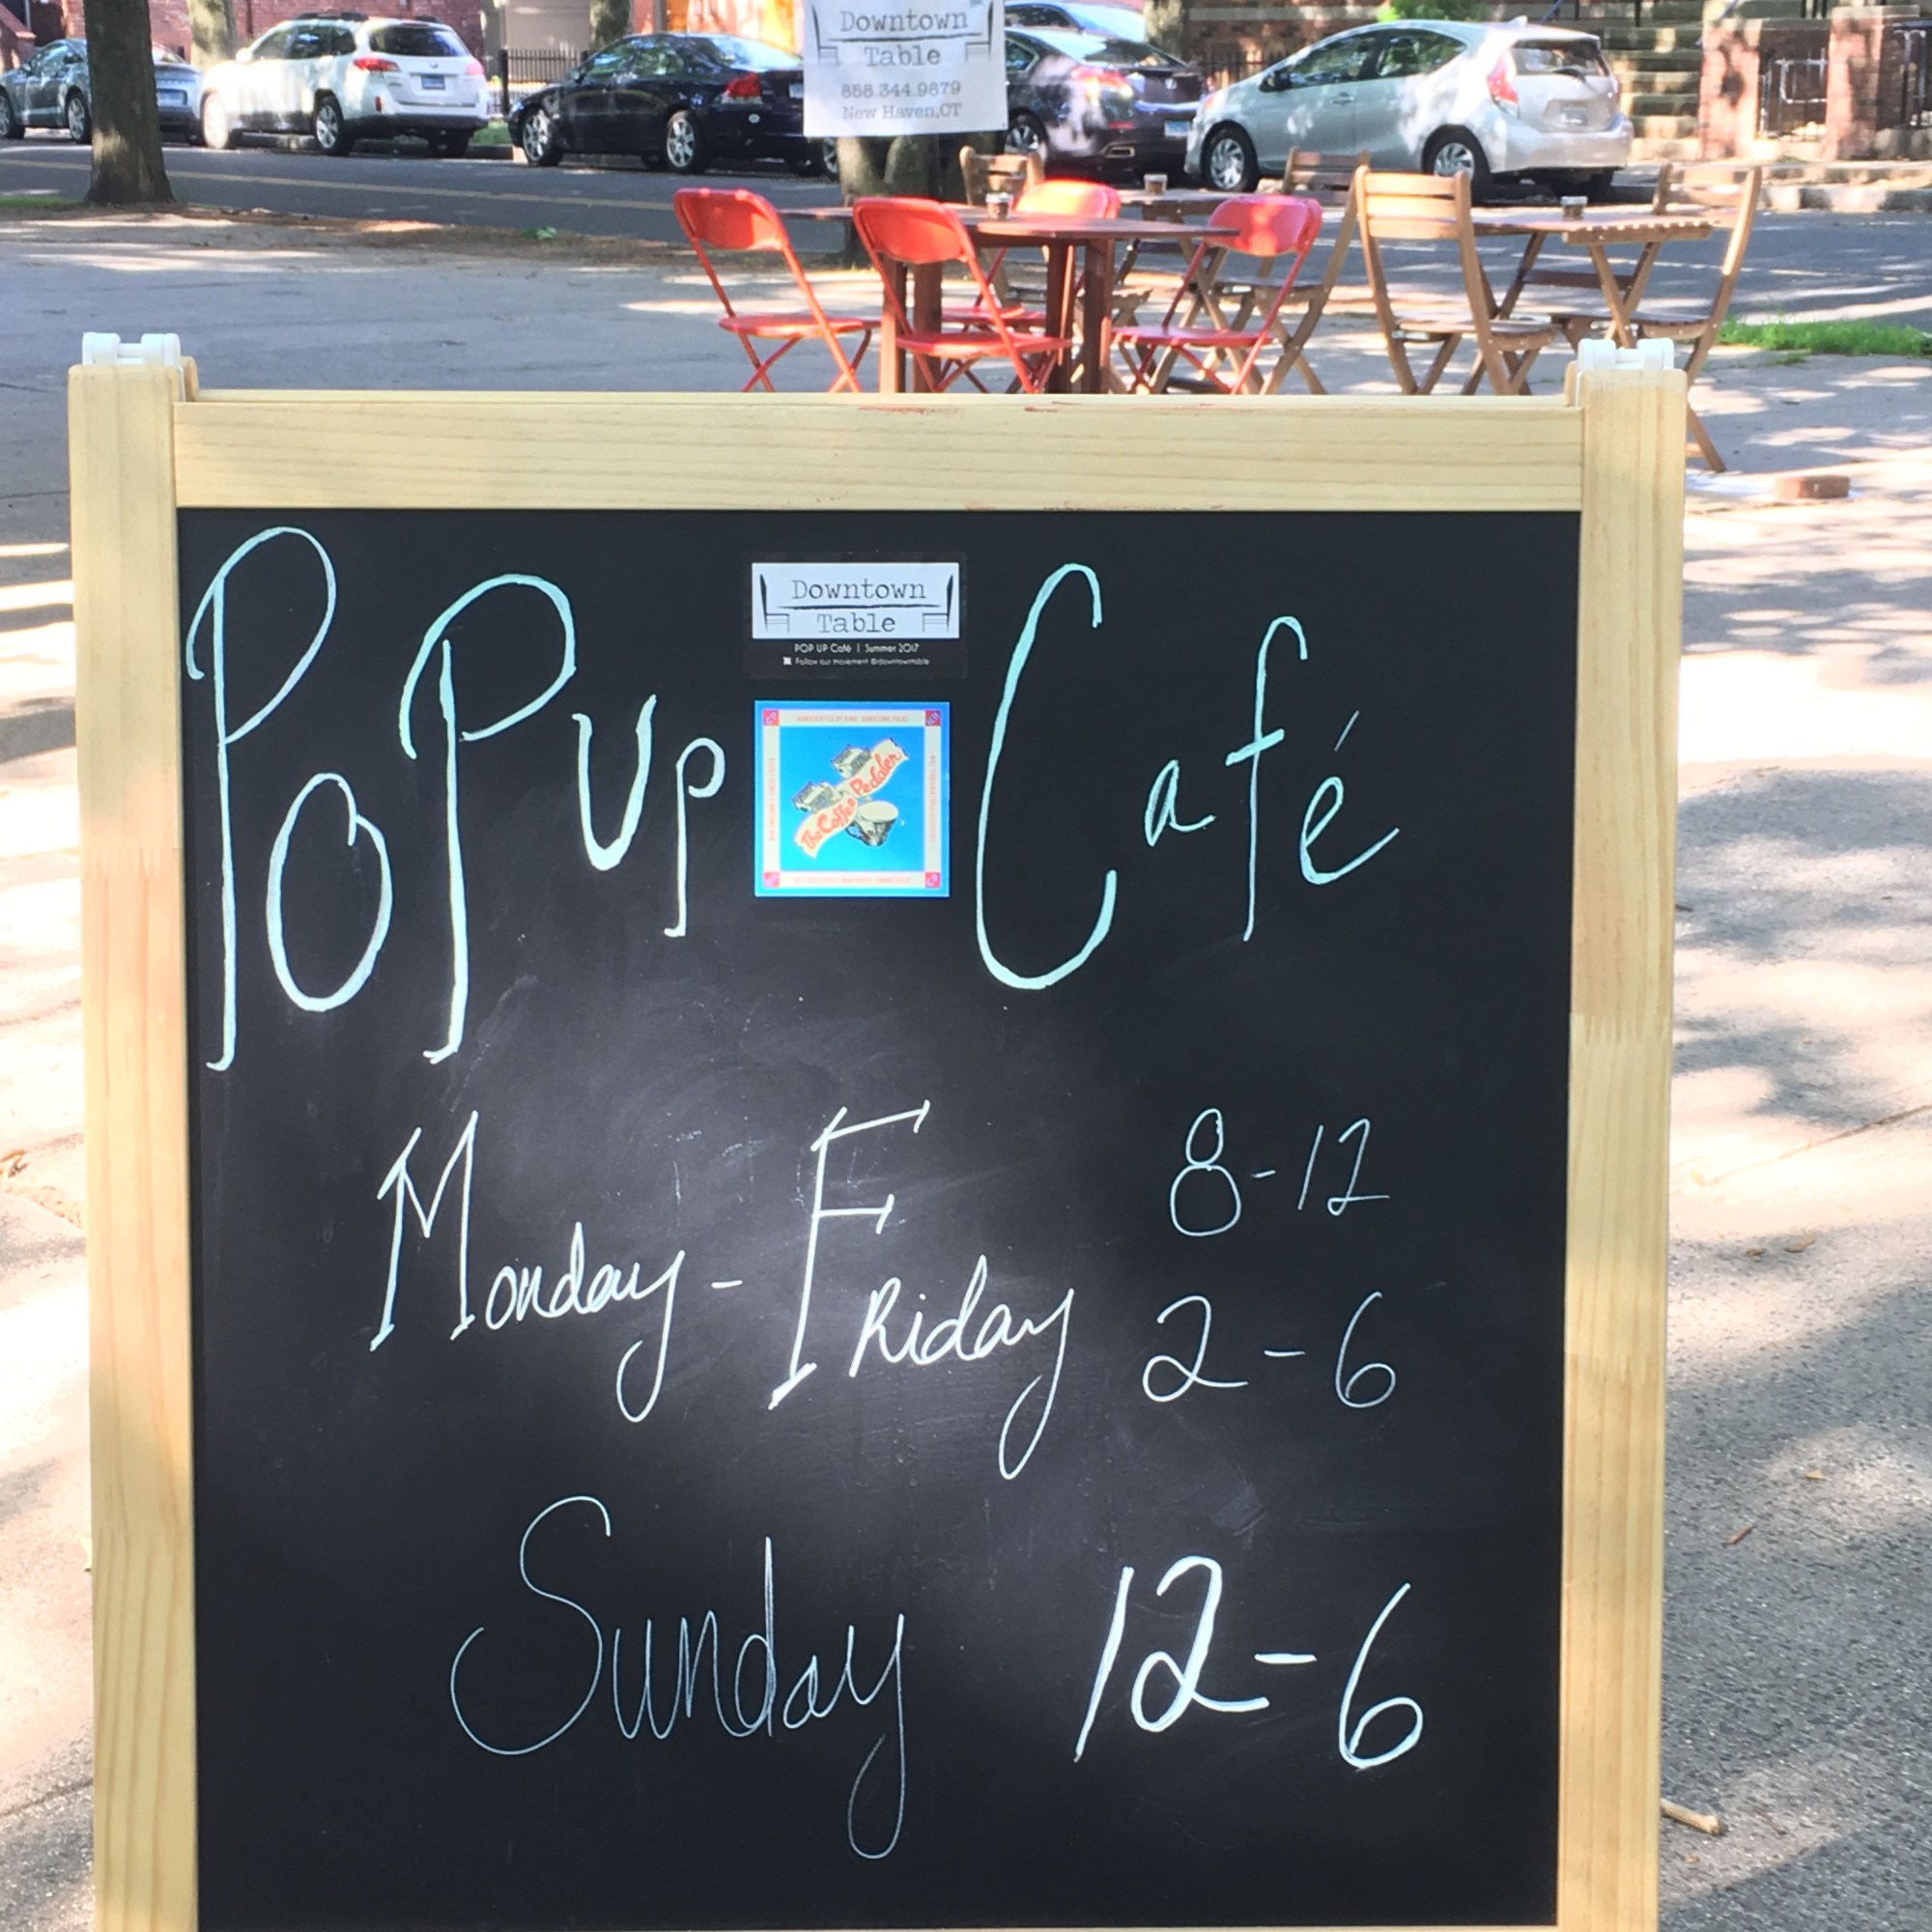 Downtown
Table
858.344.9879
New Haven,CT
PoP Up Café
Downtown
Table
POP UP Café | Summer 2017
Follow our movement @downtowntable
HANDCRAFTED BY KIND, HANDSOME FOLKS
The Coffee Pedaler
Monday - Friday 8-12
2-6
Sunday 12-6